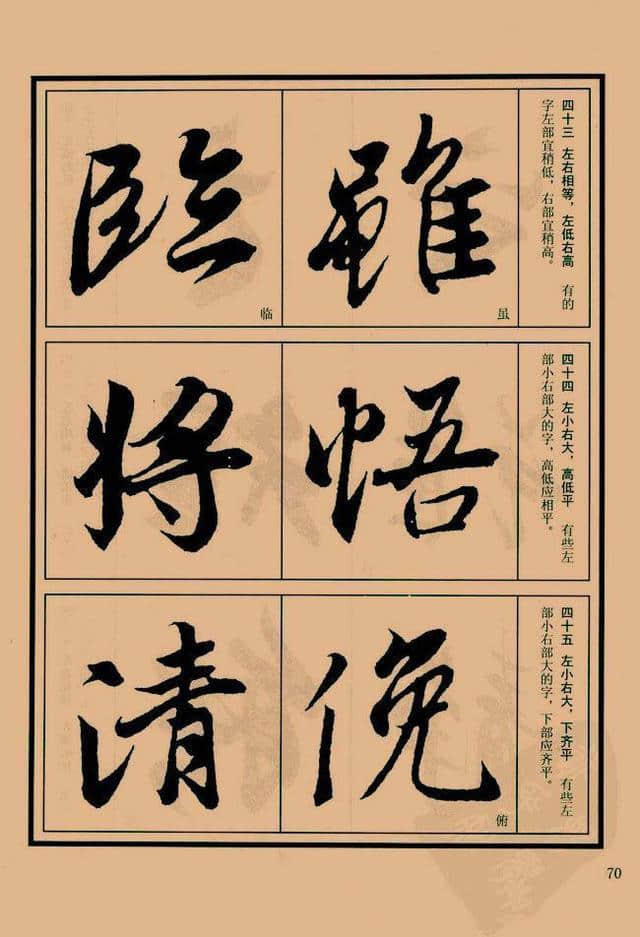 四十三 左右相等，左低右高 有的
字左部宜稍低，右部宜稍高。
雖
虽
臨
临
四十四 左小右大，高低平 有些左
部小右部大的字，高低应相平。
悟
将
四十五 左小右大，下齐平 有些左
部小右部大的字，下部应齐平。
俛
俯
清
70